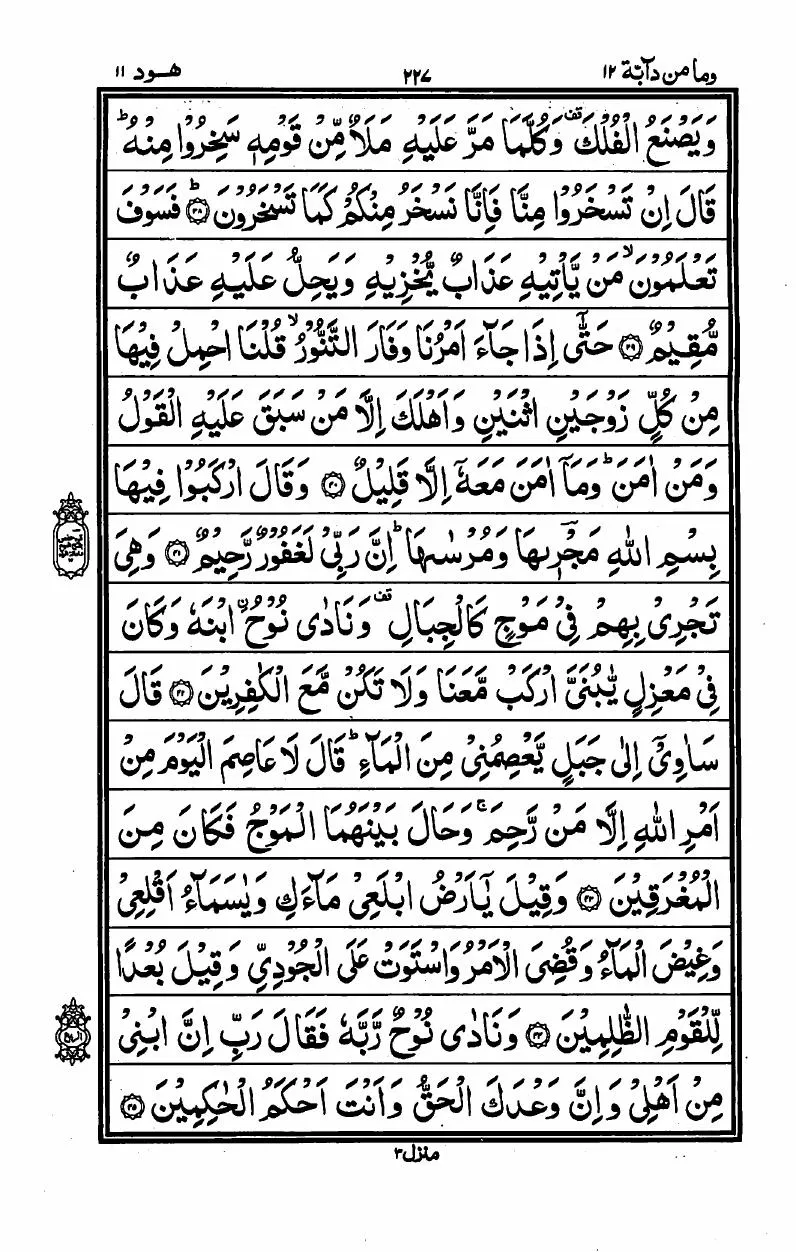 وما من دآبة ١٢
٢٢٧
هود ١١
وَيَصْنَعُ الْفُلْكَ ۫ وَكُلَّمَا مَرَّ عَلَيْهِ مَلَاٌ مِّنْ قَوْمِهٖ سَخِرُوْا مِنْهُ ؕ
قَالَ اِنْ تَسْخَرُوْا مِنَّا فَاِنَّا نَسْخَرُ مِنْكُمْ كَمَا تَسْخَرُوْنَ ؕ ﴿٣٨﴾ فَسَوْفَ
تَعْلَمُوْنَ ۙ مَنْ يَّاْتِيْهِ عَذَابٌ يُّخْزِيْهِ وَيَحِلُّ عَلَيْهِ عَذَابٌ
مُّقِيْمٌ ﴿٣٩﴾ حَتّٰۤى اِذَا جَآءَ اَمْرُنَا وَفَارَ التَّنُّوْرُ ۙ قُلْنَا احْمِلْ فِيْهَا
مِنْ كُلٍّ زَوْجَيْنِ اثْنَيْنِ وَاَهْلَكَ اِلَّا مَنْ سَبَقَ عَلَيْهِ الْقَوْلُ
وَمَنْ اٰمَنَ ؕ وَمَاۤ اٰمَنَ مَعَهٗۤ اِلَّا قَلِيْلٌ ﴿٤٠﴾ وَقَالَ ارْكَبُوْا فِيْهَا
بِسْمِ اللّٰهِ مَجْرٖىهَا وَمُرْسٰىهَا ؕ اِنَّ رَبِّيْ لَغَفُوْرٌ رَّحِيْمٌ ﴿٤١﴾ وَهِيَ
تَجْرِيْ بِهِمْ فِيْ مَوْجٍ كَالْجِبَالِ ۫ وَنَادٰى نُوْحُ ࣙابْنَهٗ وَكَانَ
فِيْ مَعْزِلٍ يّٰبُنَيَّ ارْكَبْ مَّعَنَا وَلَا تَكُنْ مَّعَ الْكٰفِرِيْنَ ﴿٤٢﴾ قَالَ
سَاٰوِيْۤ اِلٰى جَبَلٍ يَّعْصِمُنِيْ مِنَ الْمَآءِ ؕ قَالَ لَا عَاصِمَ الْيَوْمَ مِنْ
اَمْرِ اللّٰهِ اِلَّا مَنْ رَّحِمَ ۚ وَحَالَ بَيْنَهُمَا الْمَوْجُ فَكَانَ مِنَ
الْمُغْرَقِيْنَ ﴿٤٣﴾ وَقِيْلَ يٰۤاَرْضُ ابْلَعِيْ مَآءَكِ وَيٰسَمَآءُ اَقْلِعِيْ
وَغِيْضَ الْمَآءُ وَقُضِيَ الْاَمْرُ وَاسْتَوَتْ عَلَى الْجُوْدِيِّ وَقِيْلَ بُعْدًا
لِّلْقَوْمِ الظّٰلِمِيْنَ ﴿٤٤﴾ وَنَادٰى نُوْحٌ رَّبَّهٗ فَقَالَ رَبِّ اِنَّ ابْنِيْ
مِنْ اَهْلِيْ وَاِنَّ وَعْدَكَ الْحَقُّ وَاَنْتَ اَحْكَمُ الْحٰكِمِيْنَ ﴿٤٥﴾
منزل ٣